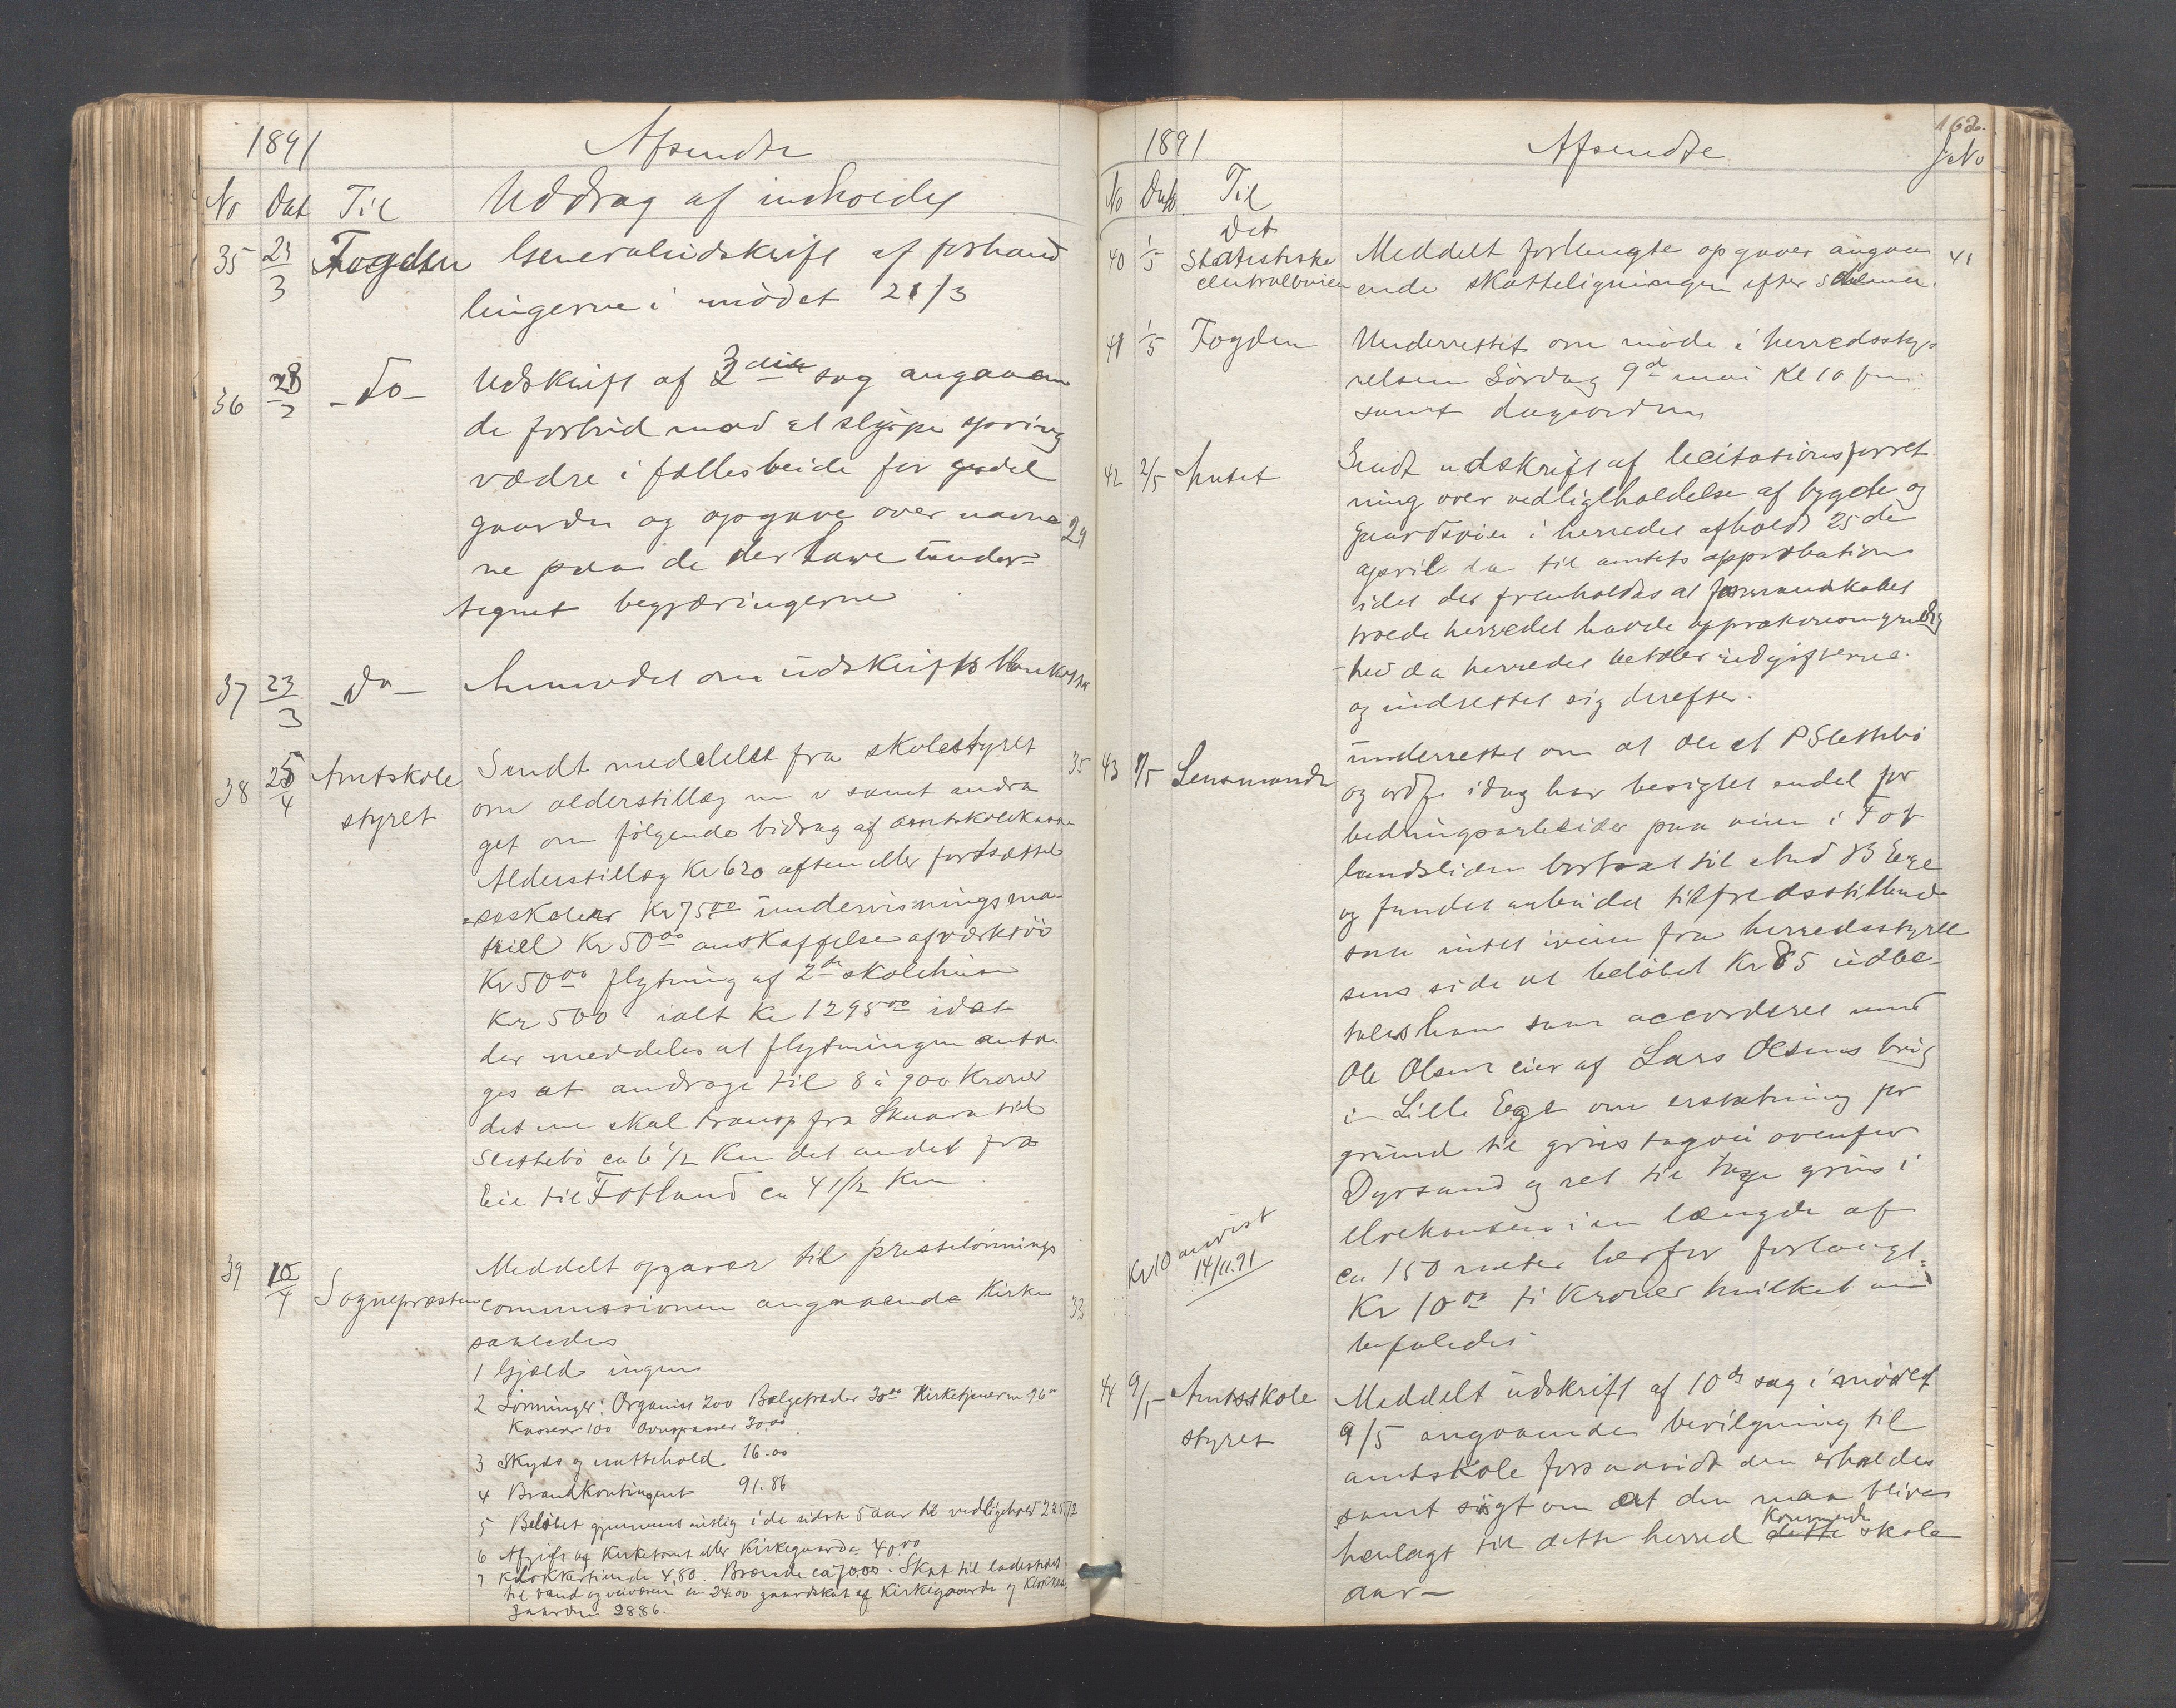 1891 Afsendte
No Dat Til Uddrag af indholdet
35 23/3 Fogden Generaludskrift af forhand
lingerne i mødet 21/3
36 28/3 - Do - Udskrift af 3die sag angaaen
de forbud mod at slippe spring
vædre i fællesbeide for endel
gaarder og opgave over navne 29
ne paa de der have under=
tegnet begjæringerne
37 23/3 - Do - Anmodet om udskrift
38 25/4 Amtskole Sendt meddelelse fra skolestyret 35
styret om alderstillæg m v samt andra
get om følgende bidrag af amtskolekassen
Alderstillæg Kr 620 aften eller fortsættel
=sesskoler Kr 75 00 undervisningsma-
triell Kr 50 00 anskaffelse af værktöi
Kr 50 00 flytning af 2de skolehuse
Kr 500 ialt Kr 1295 00 idet
der meddeles at flytningen anta-
ges at andrage til 8 à 900 Kroner
det ene skal transp fra Skaara til
Slettebö ca 6 1/2 Km det andet fra
Eie til Fotland ca 4 1/2 Km.
39 10/4 Sognepræsten Meddelt opgaver til prestelönnings
commissionen angaaende Kirken 33
saaledes
1 Gjæld ingen
2 Lönninger: Organist 200 Bælgetræder 30 00 Kirketjeneren 96 00
Kasserer 100 Ovnspasser 30.00
3 Skyds og nattehold 16.00
4 Brandkontingent 91.86
5 Belöbet gjennemsnitlig i de sidste 5 aar til vedligehold
6 Afgift af Kirketomt eller Kirkegaarde 40.00
7 Klokkertiende 4,80. Brænde ca 70,00. Skat til ladestedet
til vand og veivæsen ca 24.00 gaardskat af Kirkegaarde og Klokker
gaarden 28.86.
162.
1891 Afsendte JNo
No Dato Til
40 1/5 Det Statistiske Meddelt forlangte opgaver angaa 41
centralbureau ende skatteligningen efter schema.
41 1/5 Fogden Underrettet om möde i herredssty=
relsen Lördag 9de mai Kl 10 fm.
samt dagsorden
42 2/5 Amtet Sendt udskrift af licitationsforret
ning over vedligeholdelse af bygde og
gaardsveie i herredet afholdt 25de
april da til amtets approbation
idet der fremholdes at formandskabet
troede herredet havde approbationsmyndig
hed da herredet betaler udgifterne
og indrettet sig derefter.
43 7/5 Lensmanden underrettet om at Ole P Slettebö
og ordf idag har besigtet endel for
bedringsarbeider paa veien i Fot
landslien bortsat til And B Eege
og fundet arbeidet tilfredsstillende
saa intet iveien fra herredsstyrel
sens side at belöbet Kr 85 udbe-
tales ham samt accorderet med
Ole Olsen eier af Lars Olsens brug
i Lille Eege om erstatning for
grund til grustagvei ovenfor
Dyrsand og ret til tage grus i
elvekanten i en længde af
ca 150 meter herfor forlangt
Kr 10 00 ti Kroner hvilket an
befaledes
Kr 10 anvist
14/11.91
44 9/5 Amtsskole Meddelt udskrift af 10de sag i mödet
styret 9/5 angaaende bevilgning til
amtskole forsaavidt den erholdes
samt sögt om at den maa blive
henlagt til dette herred dette kommende skole
aar -